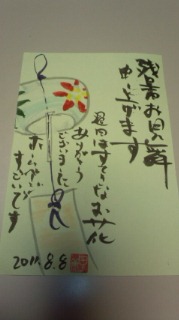 残暑お見舞
申し上げます
過日はすてきなお花
ありがとう
ございました
ホームページ
すごいです
2011.8.8